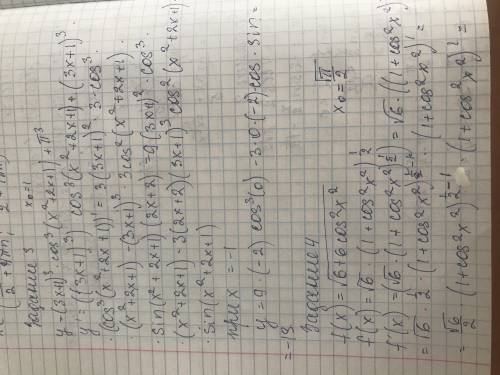 Задание 3 x₀=-1
y=(3x+1)³·cos³(x²+2x+1)+π³
y'=((3x+1)³)'·cos³(x²+2x+1)+(3x+1)³·
·(cos³(x²+2x+1))'=3(3x+1)²·3·cos³·
·(x²+2x+1)-(3x+1)³·3cos²(x²+2x+1)·
·sin(x²+2x+1)(2x+2)=9(3x+1)²·cos³·
·(x²+2x+1)-3(2x+2)(3x+1)³cos²(x²+2x+1)·
·sin(x²+2x+1)
при x=-1
cos³(0)-3·0·(-2)·cos·sin=
Задание 4 x₀=√π/2
f(x)=√6+6cos²x²
f(x)=√6·(1+cos²x²)^½
f'(x)=(√6·(1+cos²x²)^½)'=√6·((1+cos²x²)
=√6·½·(1+cos²x²)^½-1·(1+cos²x²)'=
=√6/2·(1+cos²x²)^½-1·(1+cos²x²)'=